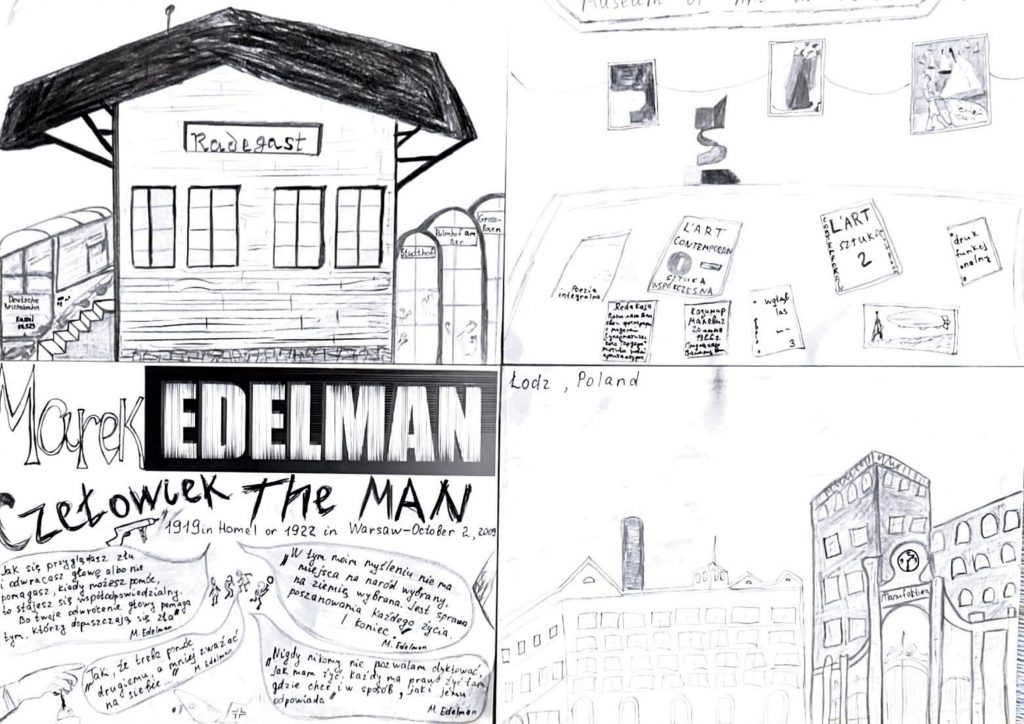 Radegast
Stutthof
Gross-
Rosen
Deutsche
Reichsbahn
Kassel
Museum of
L'ART
CONTEMPORAIN
SZTUKA
WSPÓŁCZESNA
L'ART
SZTUKA
2
druk
funkcj
onalny
Poezja
integralna
Redakcja
Казимир
Малевич
wgłąb
las
3
Marek EDELMAN
Człowiek The MAN
1919 in Homel or 1922 in Warsaw-October 2, 2009
Jak się przyglądasz złu
i odwracasz głowę albo nie
pomagasz, kiedy możesz pomóc,
to stajesz się współodpowiedzialny.
Bo twoje odwrócenie głowy pomaga
tym, którzy dopuszczają się zła"
M. Edelman
"W tym moim myśleniu nie ma
miejsca na naród wybrany,
na ziemię wybrana. Jest sprawa
poszanowania każdego życia
I koniec."
M. Edelman
"Taki, że trzeba pomóc
drugiemu, a mniej zważać
na siebie."
M. Edelman
"Nigdy nikomu nie pozwalam dyktować,
jak mam żyć. każdy ma prawo żyć tam,
gdzie chce, i w sposób, jaki jemu
odpowiada"
M. Edelman
Łodz, Poland
Manufaktura